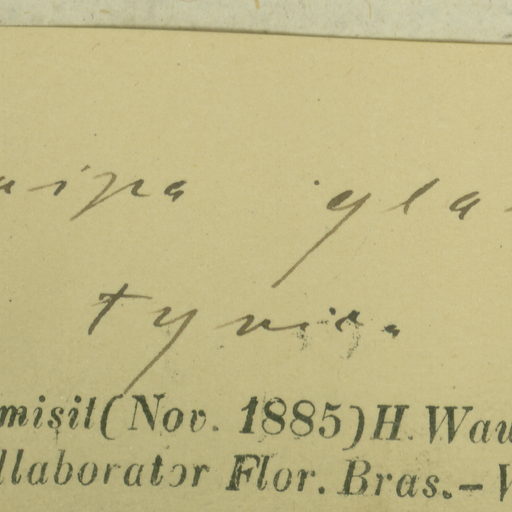 uipa gla
typica
misit (Nov. 1885) H. Waw
llaborator Flor. Bras. – V